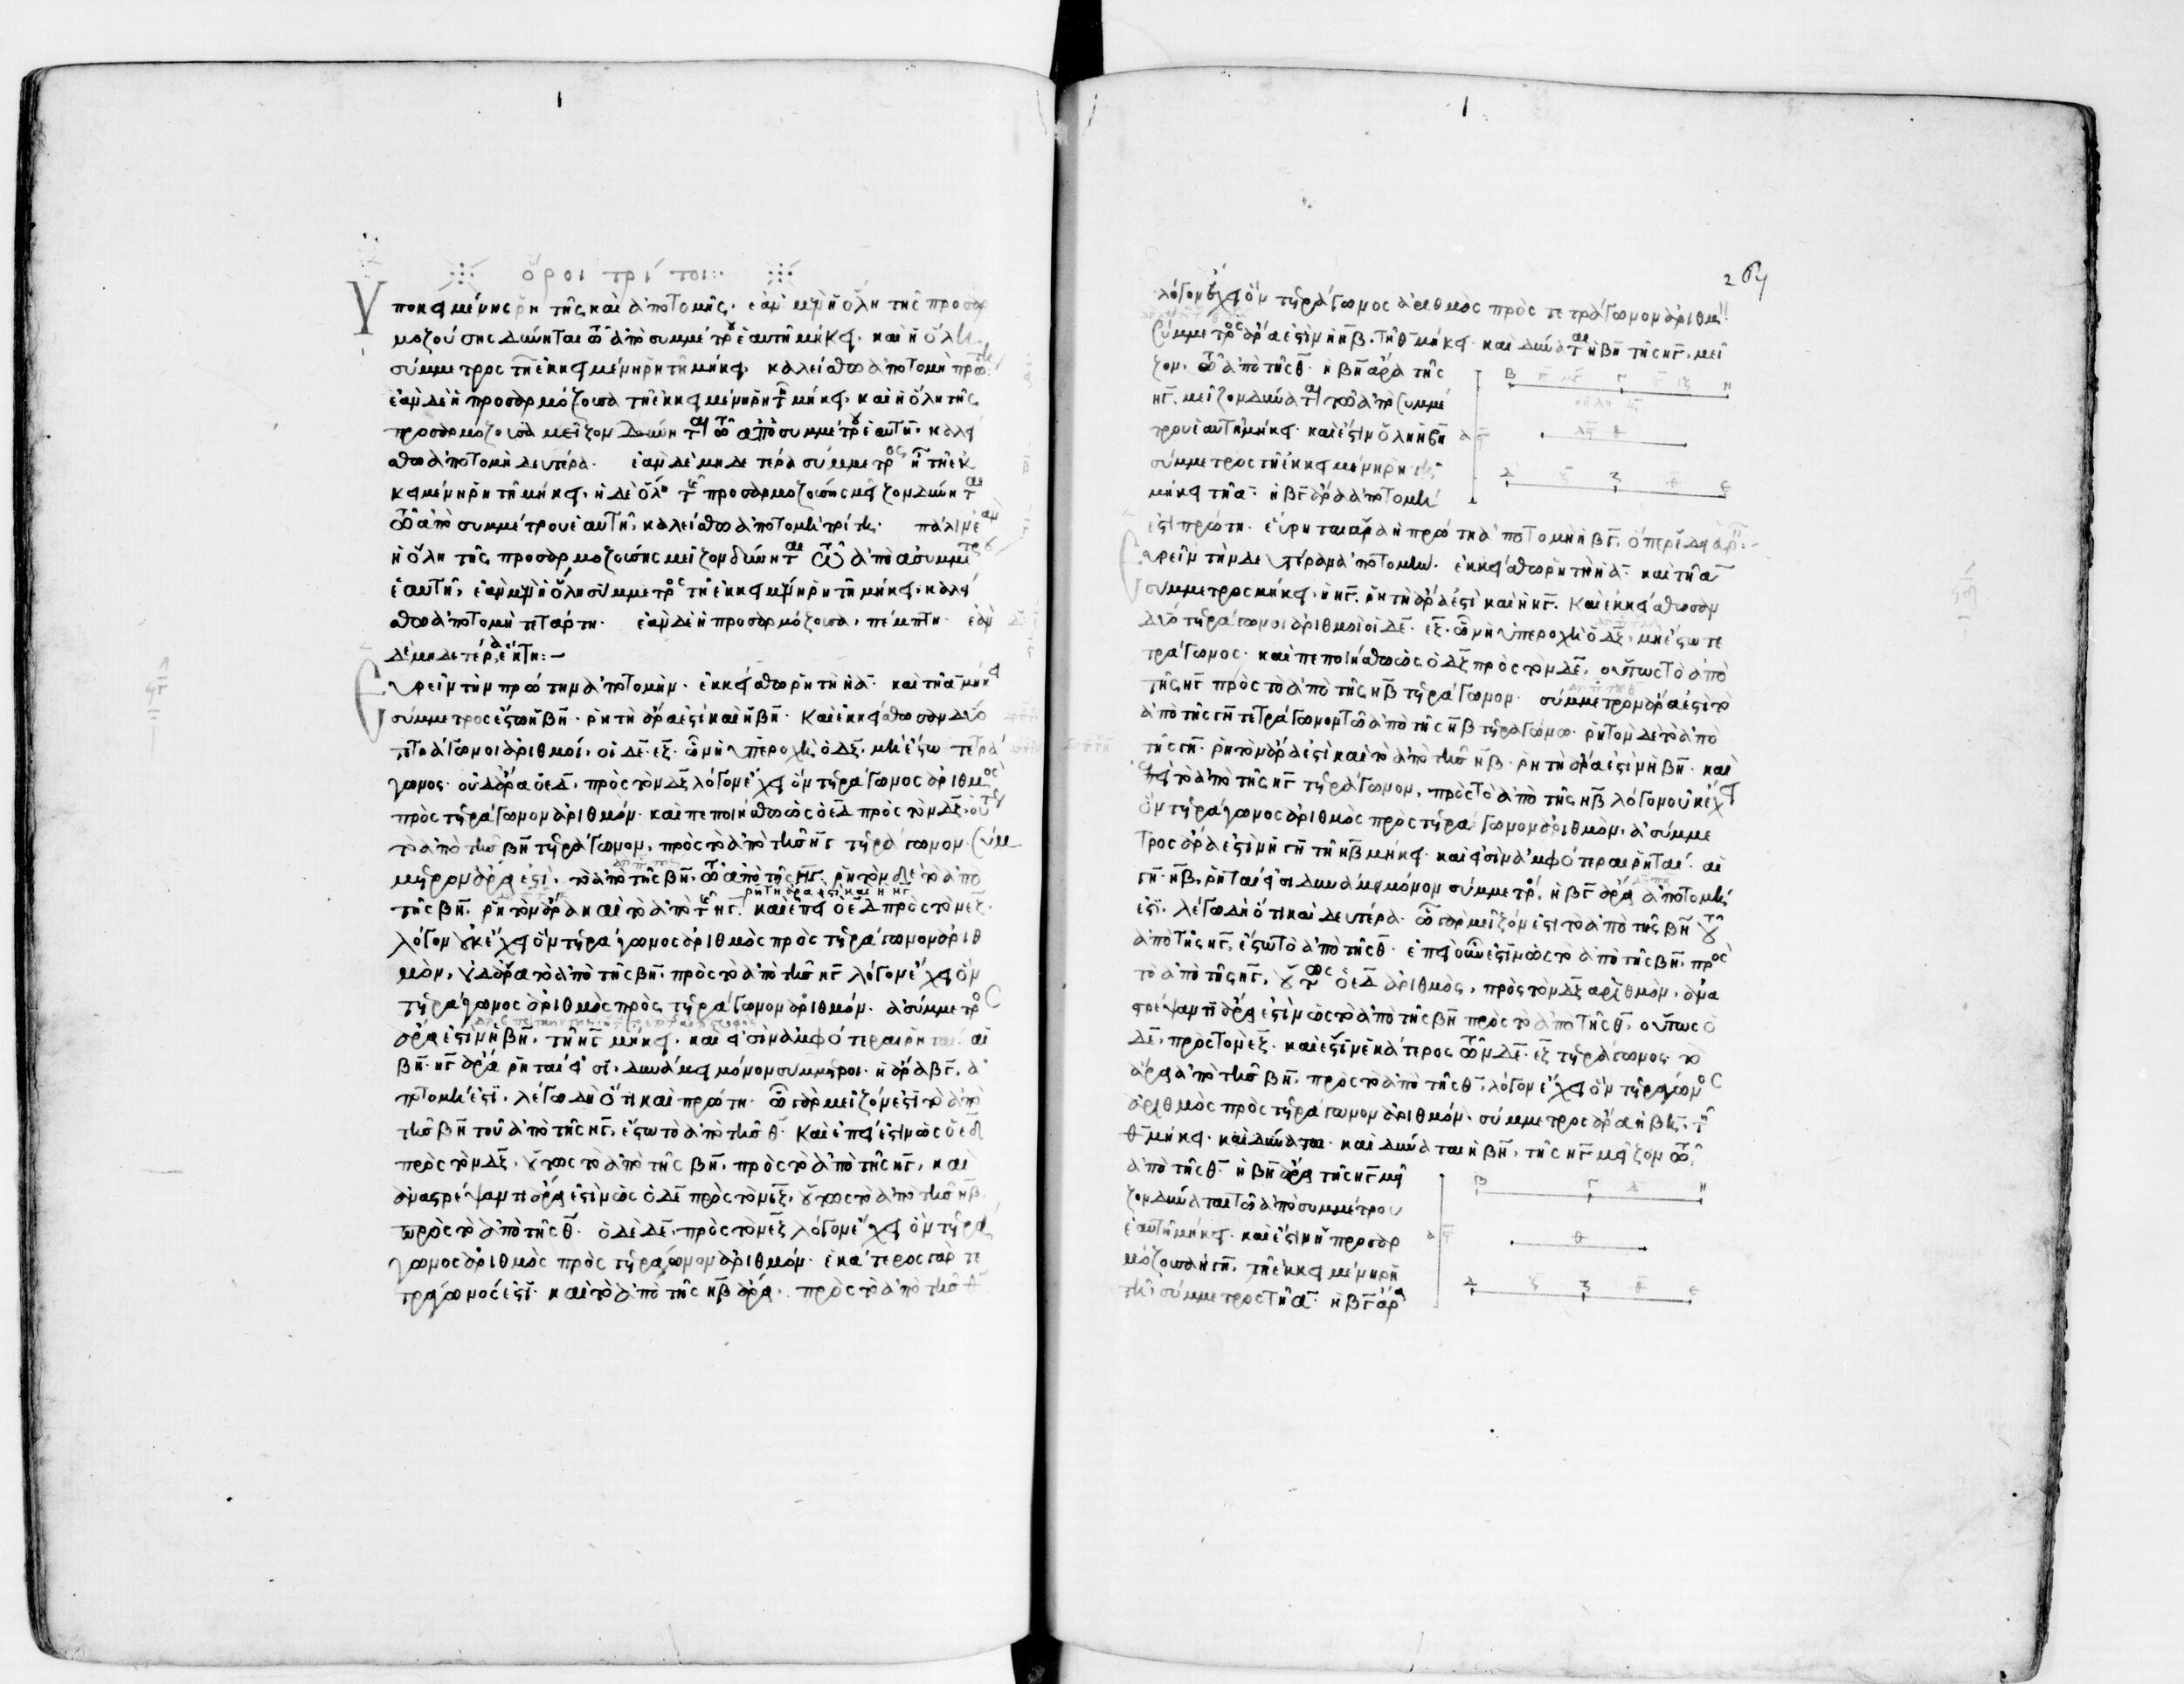 ὅροι τρίτοι
Ὑποκειμένης ῥητῆς καὶ ἀποτομῆς. ἐὰν μὲν ἡ ὅλη τῆς προσαρ
μοζούσης δύνηται τῶ ἀπὸ συμμέτρου ἑαυτῆ μήκει. καὶ ἡ ὅλη
σύμμετρος τῆ ἐκκειμένη ῥητῆ μήκει, καλείσθω ἀποτομὴ πρώτη.
ἐὰν δὲ ἡ προσαρμόζουσα τῆ ἐκκειμένη ῥητῆ μήκει, καὶ ἡ ὅλη τῆς
προσαρμοζούσης μεῖζον δύνηται τῶ ἀπὸ συμμέτρου ἑαυτῆ. καλεί
σθω ἀποτομὴ δευτέρα. ἐὰν δὲ μηδετέρα σύμμετρος ἦ τῆ ἐκ
κειμένη ῥητῆ μήκει, ἡ δὲ ὅλη τῆς προσαρμοζούσης μεῖζον δύνηται
τῶ ἀπὸ συμμέτρου ἑαυτῆ, καλείσθω ἀποτομὴ τρίτη. πάλιν ἐὰν
ἡ ὅλη τῆς προσαρμοζούσης μεῖζον δύνηται τῶ ἀπὸ ἀσυμμέτρου
ἑαυτῆ, ἐὰν μὲν ἡ ὅλη σύμμετρος τῆ ἐκκειμένη ῥητῆ μήκει, καλεί
σθω ἀποτομὴ τετάρτη. ἐὰν δὲ ἡ προσαρμόζουσα, πέμπτη. ἐὰν
δὲ μηδετέρα, ἕκτη:—
Εὑρεῖν τὴν πρώτην ἀποτομήν. ἐκκείσθω ῥητὴ ἡ α̅. καὶ τῆ α̅ μήκει
σύμμετρος ἔστω ἡ β̅η̅. ῥητὴ ἄρα ἐστὶ καὶ ἡ β̅η̅. καὶ ἐκκείσθωσαν δύο
τετράγωνοι ἀριθμοί, οἱ δ̅ε̅. ε̅ζ̅. ὧν ἡ ὑπεροχὴ ὁ δ̅ζ̅. μὴ ἔστω τετρά
γωνος. οὐδ' ἄρα ὁ ε̅δ̅, πρὸς τὸν δ̅ζ̅ λόγον ἔχει ὃν τετράγωνος ἀριθμὸς
πρὸς τετράγωνον ἀριθμόν. καὶ πεποιήσθω ὡς ὁ ε̅δ̅ πρὸς τὸν δ̅ζ̅, οὕτως
τὸ ἀπὸ τῆς β̅η̅ τετράγωνον, πρὸς τὸ ἀπὸ τῆς η̅γ̅ τετράγωνον. σύμ
μετρον ἄρα ἐστὶ. τὸ ἀπὸ τῆς β̅η̅, τῶ ἀπὸ τῆς η̅γ̅. ῥητὸν δὲ τὸ ἀπὸ
τῆς β̅η̅. ῥητὸν ἄρα καὶ τὸ ἀπὸ τῆς η̅γ̅. ῥητὴ ἄρα ἐστὶ καὶ ἡ η̅γ̅. καὶ ἐπεὶ ὁ ε̅δ̅ πρὸς τὸν ε̅ζ̅
λόγον οὐκ ἔχει ὃν τετράγωνος ἀριθμὸς πρὸς τετράγωνον ἀριθ
μὸν, οὐδ' ἄρα τὸ ἀπὸ τῆς β̅η̅. πρὸς τὸ ἀπὸ τῆς η̅γ̅ λόγον ἔχει ὃν
τετράγωνος ἀριθμὸς πρὸς τετράγωνον ἀριθμόν. ἀσύμμετρος
ἄρα ἐστὶν ἡ β̅η̅. τῆ η̅γ̅ μήκει. καὶ εἰσὶν ἀμφότεραι ῥηταί. αἱ
β̅η̅. η̅γ̅ ἄρα ῥηταί εἰσι, δυνάμει μόνον σύμμετροι. ἡ ἄρα β̅γ̅, ἀ
ποτομή ἐστι. λέγω δὴ ὅτι καὶ πρώτη. ὧ γὰρ μεῖζόν ἐστι τὸ ἀπὸ
τῆς β̅η̅ τοῦ ἀπὸ τῆς η̅γ̅, ἔστω τὸ ἀπὸ τῆς θ̅. καὶ ἐπεί ἐστιν ὡς ὁ ε̅δ̅
πρὸς τὸν δ̅ζ̅. οὕτως τὸ ἀπὸ τῆς β̅η̅. πρὸς τὸ ἀπὸ τῆς η̅γ̅, καὶ
ἀναστρέψαντι ἄρα ἐστὶν ὡς ὁ δ̅ε̅ πρὸς τὸν ε̅ζ̅, οὕτως τὸ ἀπὸ τῆς η̅β̅
πρὸς τὸ ἀπὸ τῆς θ̅. ὁ δὲ δ̅ε̅. πρὸς τὸν ε̅ζ̅ λόγον ἔχει ὃν τετρά
γωνος ἀριθμὸς πρὸς τετράγωνον ἀριθμόν. ἑκάτερος γὰρ τε
τράγωνός ἐστι. καὶ τὸ ἀπὸ τῆς η̅β̅ ἄρα. πρὸς τὸ ἀπὸ τῆς θ̅
264
λόγον ἔχει ὃν τετράγωνος ἀριθμὸς πρὸς τετράγωνον ἀριθμόν.
σύμμετρος ἄρα ἐστὶν ἡ η̅β̅. τῆ θ̅ μήκει. καὶ δύναται ἡ β̅η̅ τῆς η̅γ̅. μεῖ
ζον. τῶ ἀπὸ τῆς θ̅. ἡ β̅η̅ ἄρα τῆς
η̅γ̅. μεῖζον δύναται τῶ ἀπὸ συμμέ
τρου ἑαυτῆ μήκει. καὶ ἐστιν ὅλη ἡ β̅η̅
σύμμετρος τῆ ἐκκειμένη ῥητῆ
μήκει τῆ α̅. ἡ β̅γ̅ ἄρα ἀποτομή
ἐστι πρώτη. εὕρηται ἄρα ἡ πρώτη ἀποτομὴ ἡ β̅γ̅. ὅπερ ἔδει εὑρεῖν:—
Εὑρεῖν τὴν δευτέραν ἀποτομήν. ἐκκείσθω ῥητὴ ἡ α̅. καὶ τῆ α̅
σύμμετρος μήκει. ἡ η̅γ̅. ῥητὴ ἄρα ἐστὶ καὶ ἡ η̅γ̅. καὶ ἐκκείσθωσαν
δύο τετράγωνοι ἀριθμοὶ οἱ δ̅ε̅. ε̅ζ̅. ὧν ἡ ὑπεροχὴ ὁ δ̅ζ̅. μὴ ἔστω τε
τράγωνος. καὶ πεποιήσθω ὡς ὁ δ̅ζ̅ πρὸς τὸν δ̅ε̅, οὕτως τὸ ἀπὸ
τῆς η̅γ̅ πρὸς τὸ ἀπὸ τῆς η̅β̅ τετράγωνον. σύμμετρον ἄρα ἐστὶ τὸ
ἀπὸ τῆς γ̅η̅ τετράγωνον τῶ ἀπὸ τῆς η̅β̅ τετραγώνω. ῥητὸν δὲ τὸ ἀπὸ
τῆς γ̅η̅. ῥητὸν ἄρα ἐστὶ καὶ τὸ ἀπὸ τῆς η̅β̅. ῥητὴ ἄρα ἐστὶν ἡ β̅η̅. καὶ
ἐπεὶ τὸ ἀπὸ τῆς η̅γ̅ τετράγωνον, πρὸς τὸ ἀπὸ τῆς η̅β̅ λόγον οὐκ ἔχει
ὃν τετράγωνος ἀριθμὸς πρὸς τετράγωνον ἀριθμόν, ἀσύμμε
τρος ἄρα ἐστὶν ἡ γ̅η̅ τῆ η̅β̅ μήκει. καὶ εἰσὶν ἀμφότεραι ῥηταί. αἱ
γ̅η̅. η̅β̅, ῥηταί εἰσι δυνάμει μόνον σύμμετροι, ἡ β̅γ̅ ἄρα ἀποτομή
ἐστι. λέγω δὴ ὅτι καὶ δευτέρα. ὧ γὰρ μεῖζόν ἐστι τὸ ἀπὸ τῆς β̅η̅ τοῦ
ἀπὸ τῆς η̅γ̅, ἔστω τὸ ἀπὸ τῆς θ̅. ἐπεὶ οὖν ἐστιν ὡς τὸ ἀπὸ τῆς β̅η̅. πρὸς
τὸ ἀπὸ τῆς η̅γ̅, οὕτως ὁ ε̅δ̅ ἀριθμὸς, πρὸς τὸν δ̅ζ̅ ἀριθμόν, ἀνα
στρέψαντι ἄρα ἐστὶν ὡς τὸ ἀπὸ τῆς β̅η̅ πρὸς τὸ ἀπὸ τῆς θ̅, οὕτως ὁ
δ̅ε̅. πρὸς τὸν ε̅ζ̅. καὶ ἐστιν ἑκάτερος τῶν δ̅ε̅. ε̅ζ̅ τετράγωνος. τὸ
ἄρα ἀπὸ τῆς β̅η̅. πρὸς τὸ ἀπὸ τῆς θ̅, λόγον ἔχει ὃν τετράγωνος
ἀριθμὸς πρὸς τετράγωνον ἀριθμόν. σύμμετρος ἄρα ἡ β̅η̅. τῆ
θ̅ μήκει. καὶ δύναται. καὶ δύναται ἡ β̅η̅, τῆς η̅γ̅ μεῖζον τῶ
ἀπὸ τῆς θ̅. ἡ β̅η̅ ἄρα τῆς η̅γ̅ μεῖ
ζον δύναται τῶ ἀπὸ συμμέτρου
ἑαυτῆ μήκει. καὶ ἐστιν ἡ προσαρ
μόζουσα ἡ γ̅η̅, τῆ ἐκκειμένη ῥη
τῆ σύμμετρος τῆ α̅. ἡ β̅γ̅ ἄρα